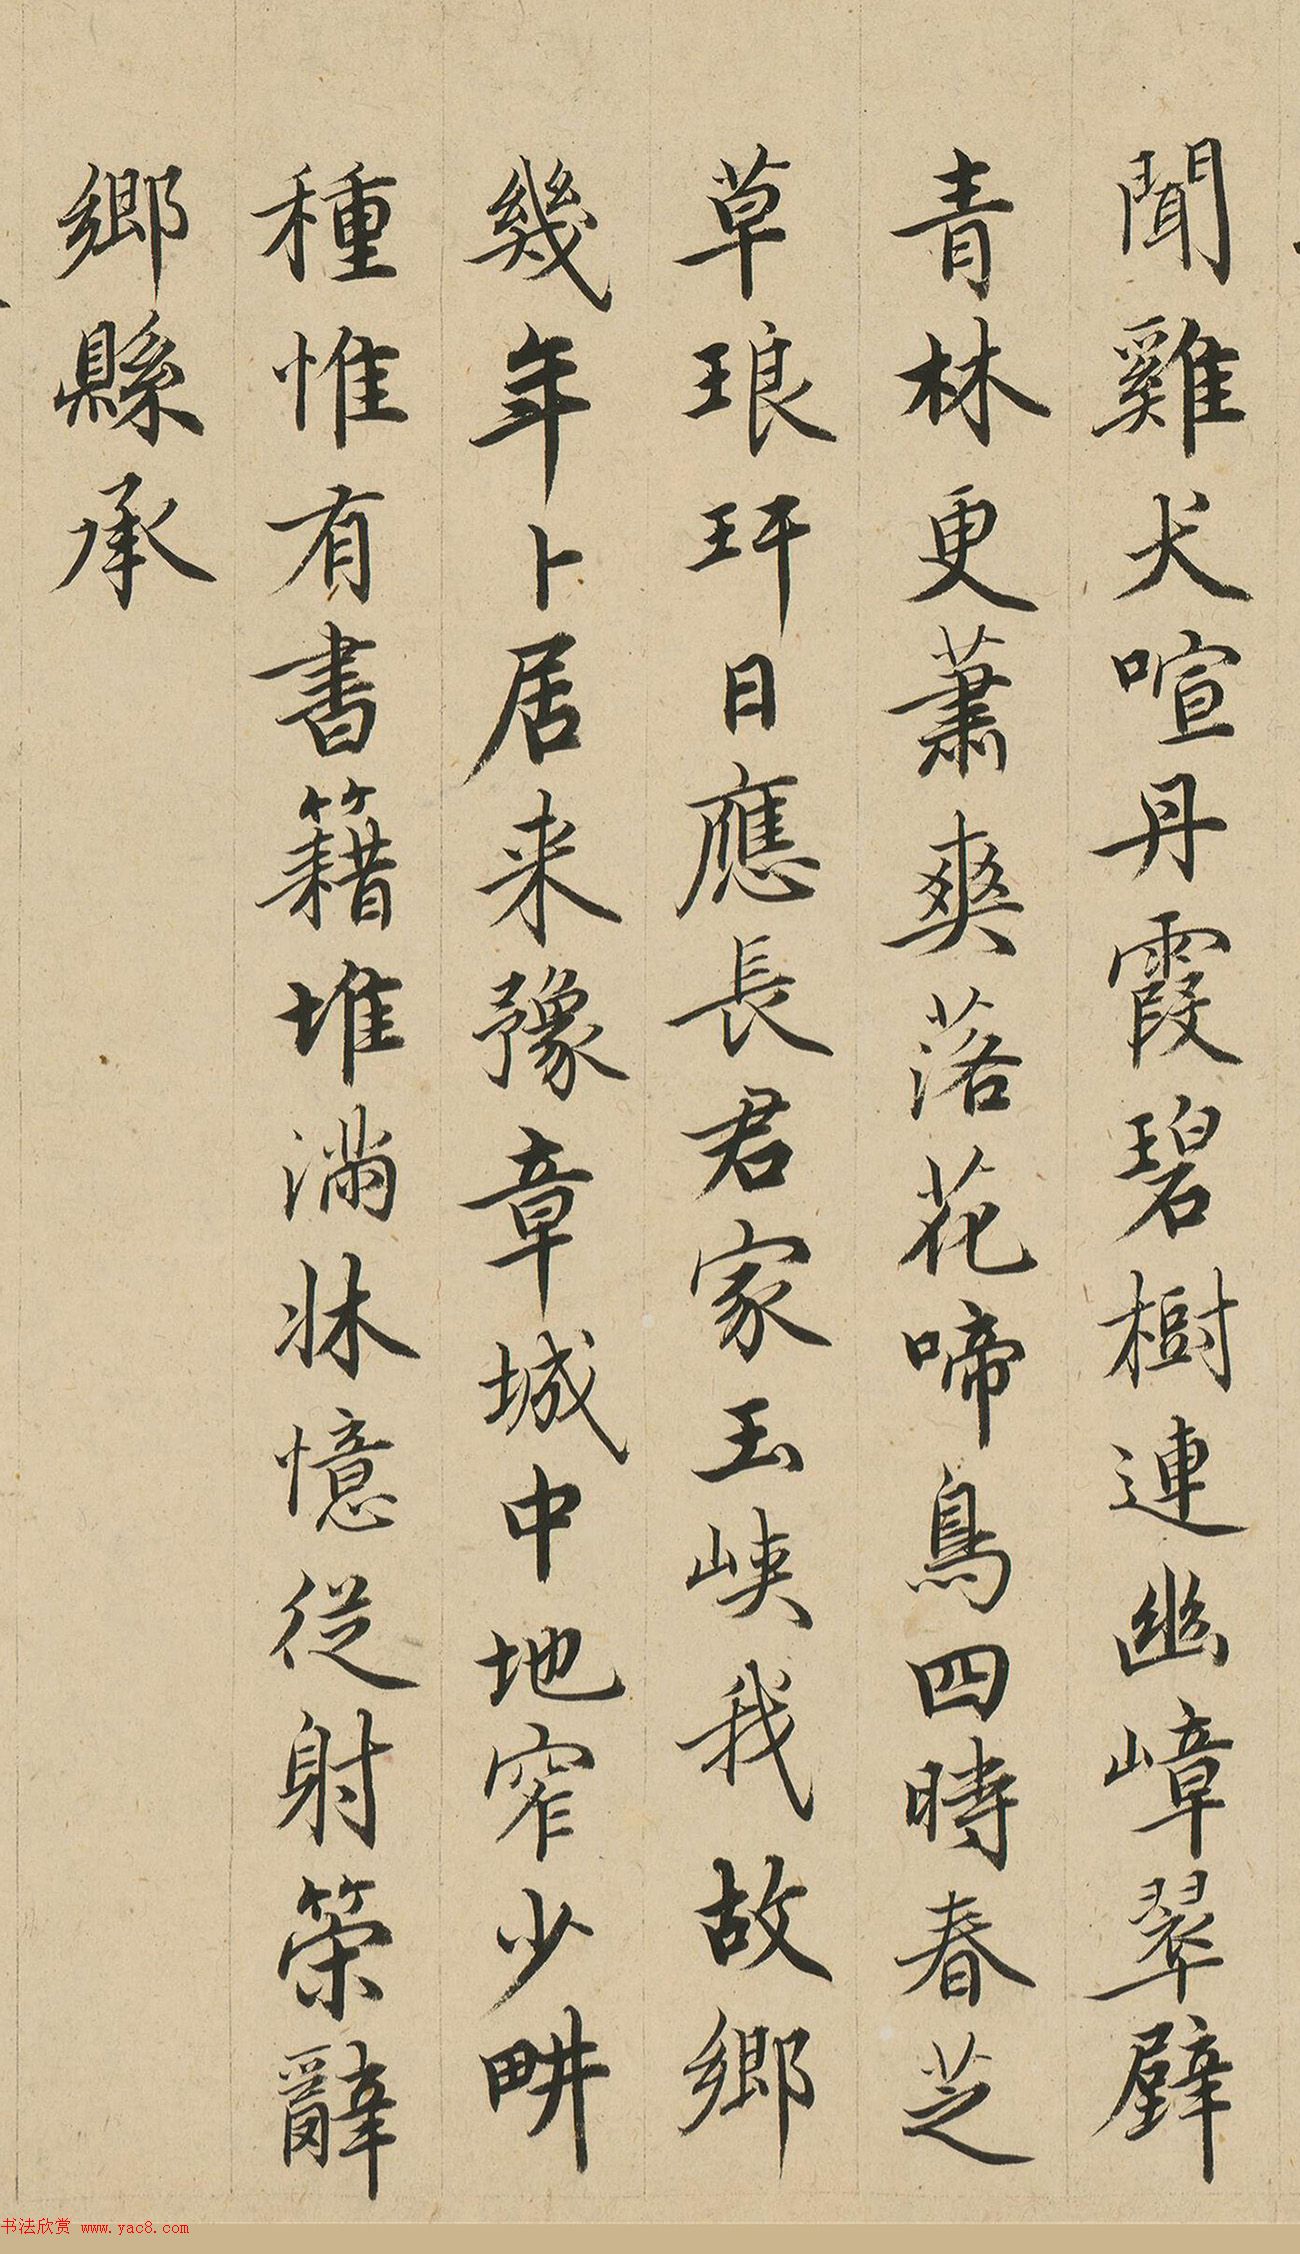 聞雞犬喧丹霞碧樹連幽嶂翠壁
青林更蕭爽落花啼鳥四時春芝
草琅玕日應長君家玉峽我故鄉
幾年卜居来豫章城中地窄少畊
種惟有書籍堆滿牀憶從射策辭
鄉縣承
书法欣赏 www.yac8.com